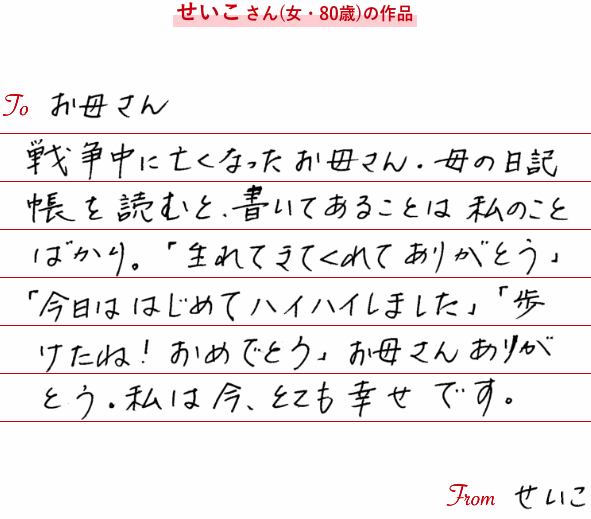 せいこさん(女・80歳)の作品
To お母さん
戦争中に亡くなったお母さん.母の日記
帳を読むと、書いてあることは私のこと
ばかり。「生れてきてくれてありがとう」
「今日ははじめてハイハイしました」「歩
けたね!おめでとう」お母さんありが
とう.私は今、とても幸せです。
From せいこ